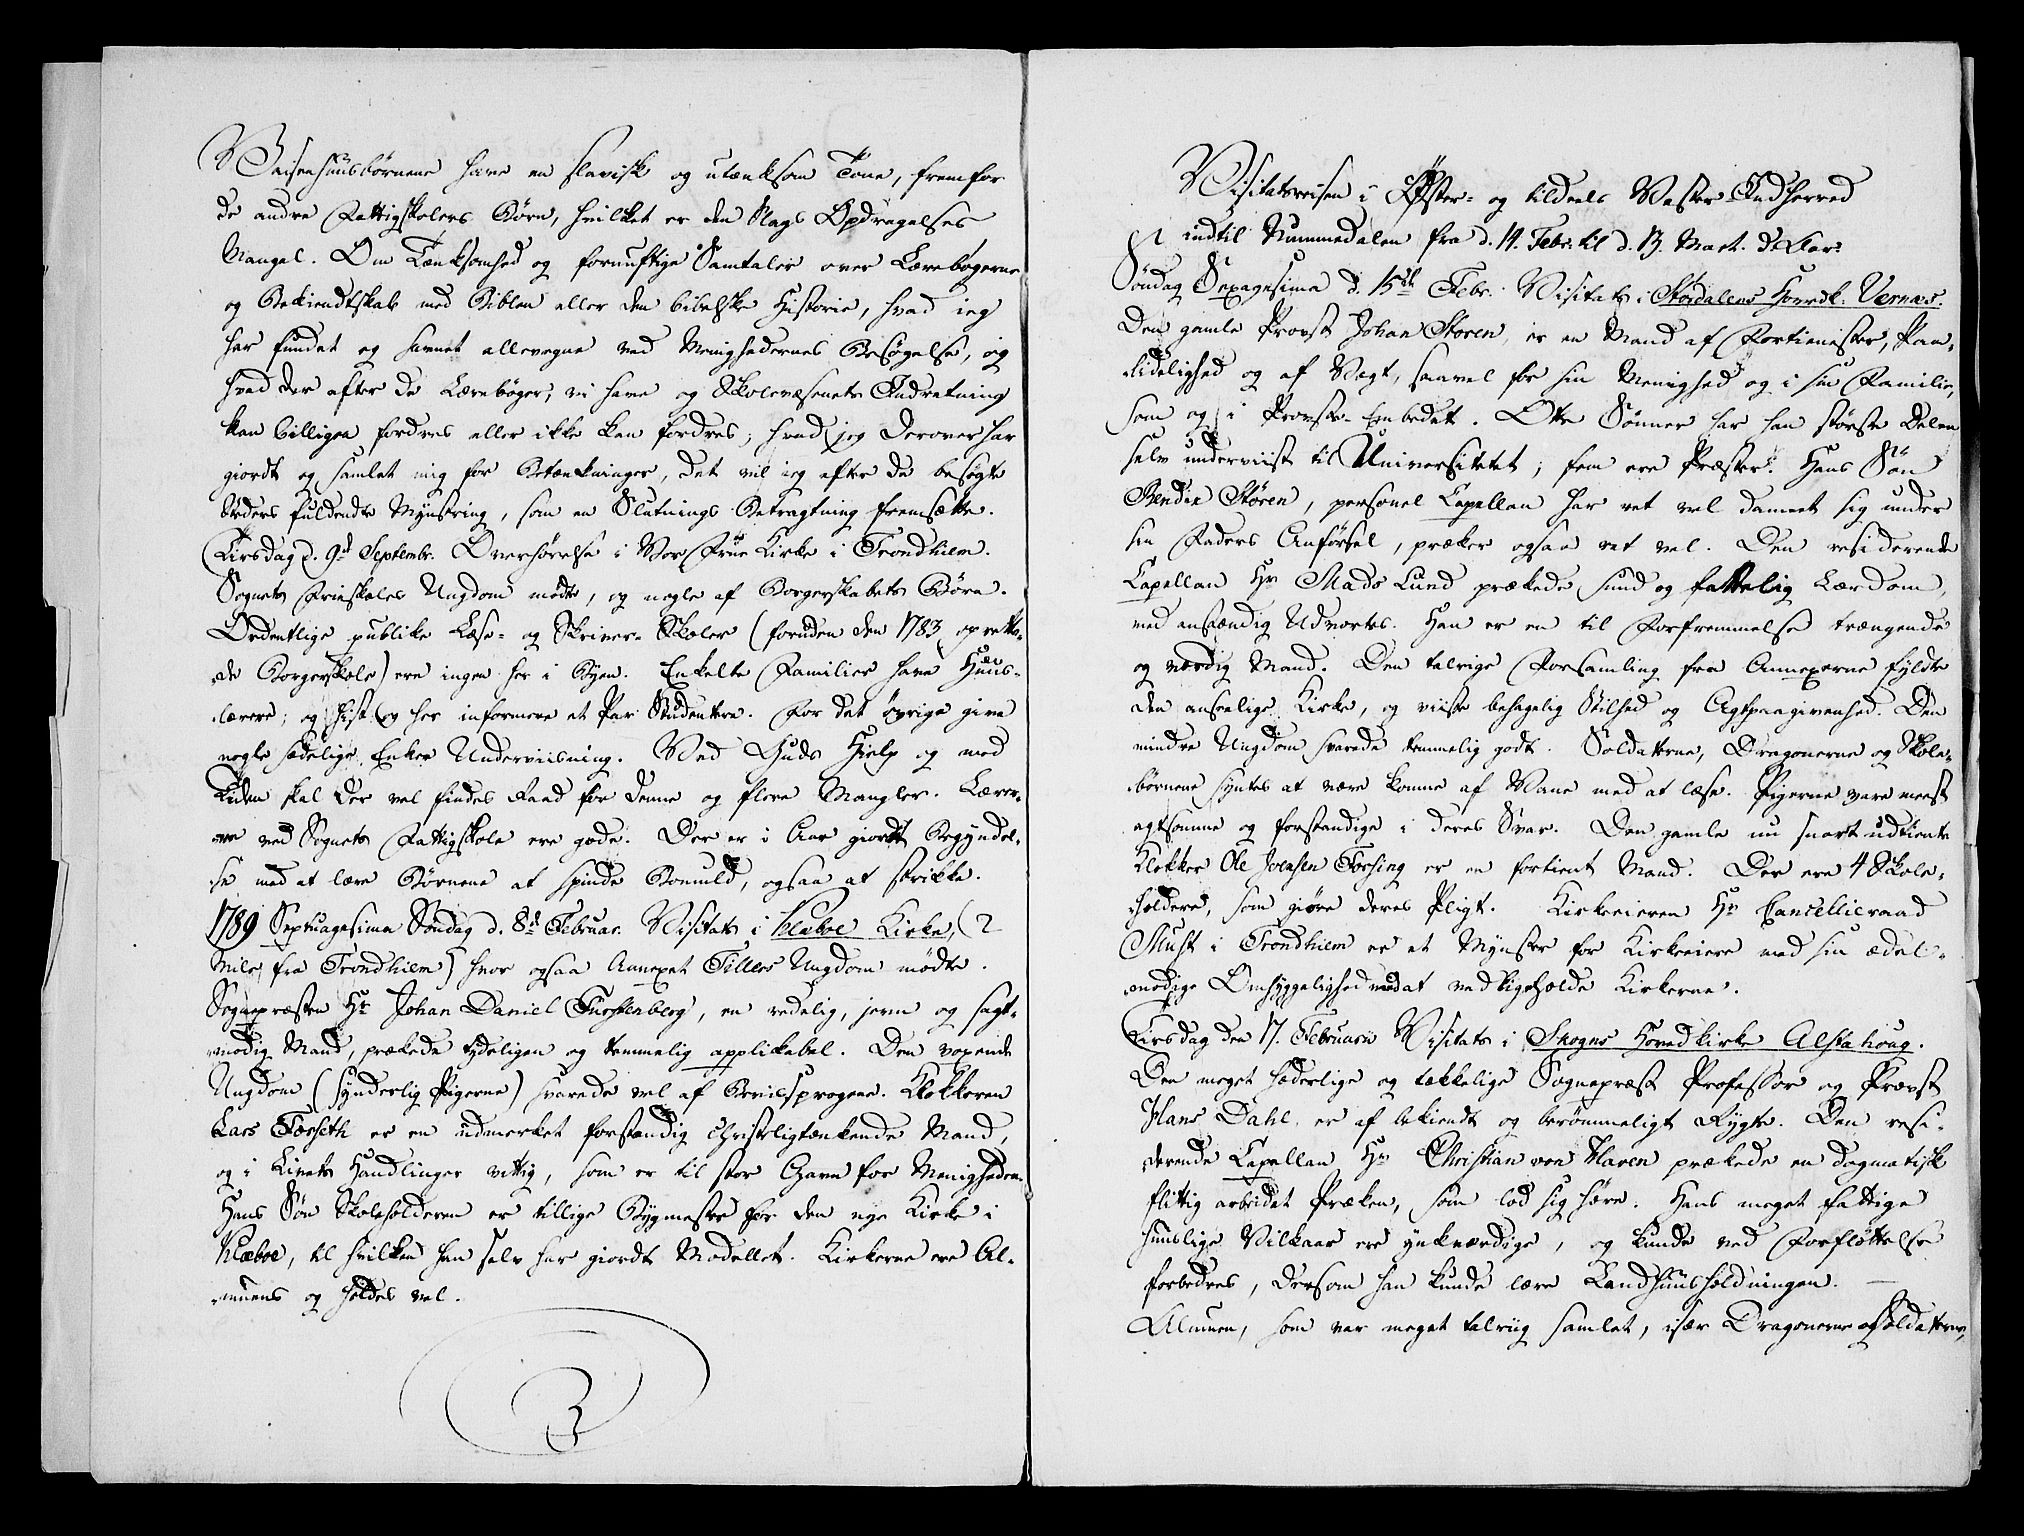 Waisenhuusbørnene have en slavisk og utænksom Tone, fremfor
de andre Fattigskolers Børn, hvilket er den Slags Opdragelses
Mangel. Om Tænksomhed og fornuftige Samtaler over Lærebøgerne
og Bekiendtskab med Biblen eller den bibelske Historie, hvad ieg
har fundet og savnet allevegne ved Menighedernes Besøgelse, og
hvad der efter de Lærebøger, vi have og Skolevæsenets Indretning
kan billigen fordres eller ikke kan fordres, hvad jeg derover har
giordt og samlet mig for Betænkninger, det vil ieg efter de besøgte
Steders fuldendte Mynstring, som en Slutnings-Betragtning fremsætte.
Tirsdag d. 9d Septembr. Overhørelse i Vor Frue Kirke i Trondhiem.
Sognets Frieskoles Ungdom mødte, og nogle af Borgerskabets Børn.
Ordentlige publike Læse- og Skriver-Skoler (foruden den 1783 oprette-
de Borgerskole) ere ingen her i Byen. Enkelte Familier have Huus-
lærere; og hist og her informere et Par Studentere. For det øvrige give
nogle sædelige Enker Underviisning. Ved Guds Hielp og med
Tiden skal der vel findes Raad for denne og flere Mangler. Lærer-
ne ved Sognets Fattigskole ere gode. Der er i Aar giordt Begyndel-
se med at lære Børnene at spinde Bomuld, ogsaa at strikke.
1789 Septuagesima Søndag d. 8de Februar. Visitats i Klæboe Kirke, (2
Mile fra Trondhiem) hvor ogsaa Annexet Tillers Ungdom mødte.
Sognepræsten Hr Johan Daniel Fürstenberg, en redelig, jevn og sagt-
modig Mand, prækede tydeligen og temmelig applikabel. Den voxende
Ungdom (synderlig Pigerne) svarede vel af Beviissprogene. Klokkeren
Lars Forseth er en udmerket forstandig christeligtænkende Mand,
og i Livets Handlinger vittig, som er til stor Gavn for Menigheden.
Hans Søn Skoleholderen er tillige Bygmester for den nye Kirke i
Klæboe, til hvilken han selv har giordt Modellet. Kirkerne ere Al-
muens og holdes vel.
Visitatsreisen i Øster- og tildeels Vester-Indherred
indtil Nummedalen fra d. 14. Febr. til d. 13. Mart.
Søndag Sexagesima d. 15de Febr. Visitats i Størdalens Hovedk. Vernæs.
Den gamle Provst Johan Støren, er en Mand af Fortienester, Paa-
lidelighed og af Vægt, saavel for sin Menighed og i sin Familie,
som og i Provste-Embedet. Otte Sønner har han største Delen
selv underviist til Universitetet; fem ere Præster. Hans Søn
Bendix Støren, personel Capellan har vet vel dannet sig under
sin Faders Anførsel, præker ogsaa ret vel. Den residerende
Capellan Hr Mads Lund prækede sund og fattelig Lærdom,
med anstændig Udvortes. Han er en til Forfremmelse trængende
og værdig Mand. Den talrige Forsamling fra Annexerne fyldte
den anseelige Kirke, og viiste behagelig Stilhed og Agtpaagivenhed. Den
mindre Ungdom svarede temmelig godt. Soldaterne, Dragonerne og Skole-
børnene syntes at være komne af Vane med at læse. Pigerne vare meest
agtsomme og forstandige i deres Svar. Den gamle nu snart udtiente
Klokker Ole Joensen Forsing er en fortient Mand. Der ere 4 Skole-
holdere, som giøre deres Pligt. Kirkeeieren Hr Cancellieraad
Must i Trondhiem er et Mynster for Kirkeeiere med sin ædel-
modige Omhyggelighed med at vedligeholde Kirkerne.
Tirsdag den 17. Februarii Visitats i Skogns Hovedkirke Alstahoug.
Den meget hæderlige og tækkelige Sognepræst Professor og Provst
Hans Dahl, er af bekiendt og berømmeligt Rygte. Den resi-
derende Capellan Hr Christian von Haven prækede en dogmatisk
flittig arbeidet Præken, som lod sig høre. Hans meget fattige
huuslige Vilkaar ere ynkværdige, og kunde ved Forflyttelse
forbedres, dersom han kunde lære Landhuusholdningen. —
Almuen, som var meget talriig samlet, især Dragonerne og Soldaterne,